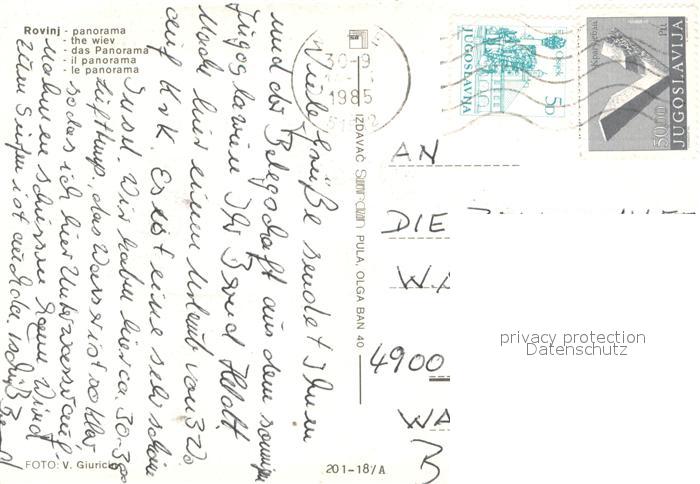 Rovinj - panorama
- the wiev
- das Panorama
- il panorama
- le panorama
Viele Grüße sendet Ihnen
und der Belegschaft aus dem sonnigen
Jugoslawien Ihr Bernd
Mache hier einen Urlaub von 3 Wo
auf Krk. Es ist eine sehr schöne
Insel. Wir haben hier ca. 30-
Luft, das Wasser ist so klar,
so das ich hier Unterwasserauf-
nahmen schiessen kann. Wind
zum Surfen ist auch da.
FOTO: V. Giuricin
201-18/A
IZDAVAČ PULA, OLGA BAN 40
30-9
1985
JUGOSLAVIJA
5D
JUGOSLAVIJA
50.00
AN
DIE
4900
WA
privacy protection
Datenschutz